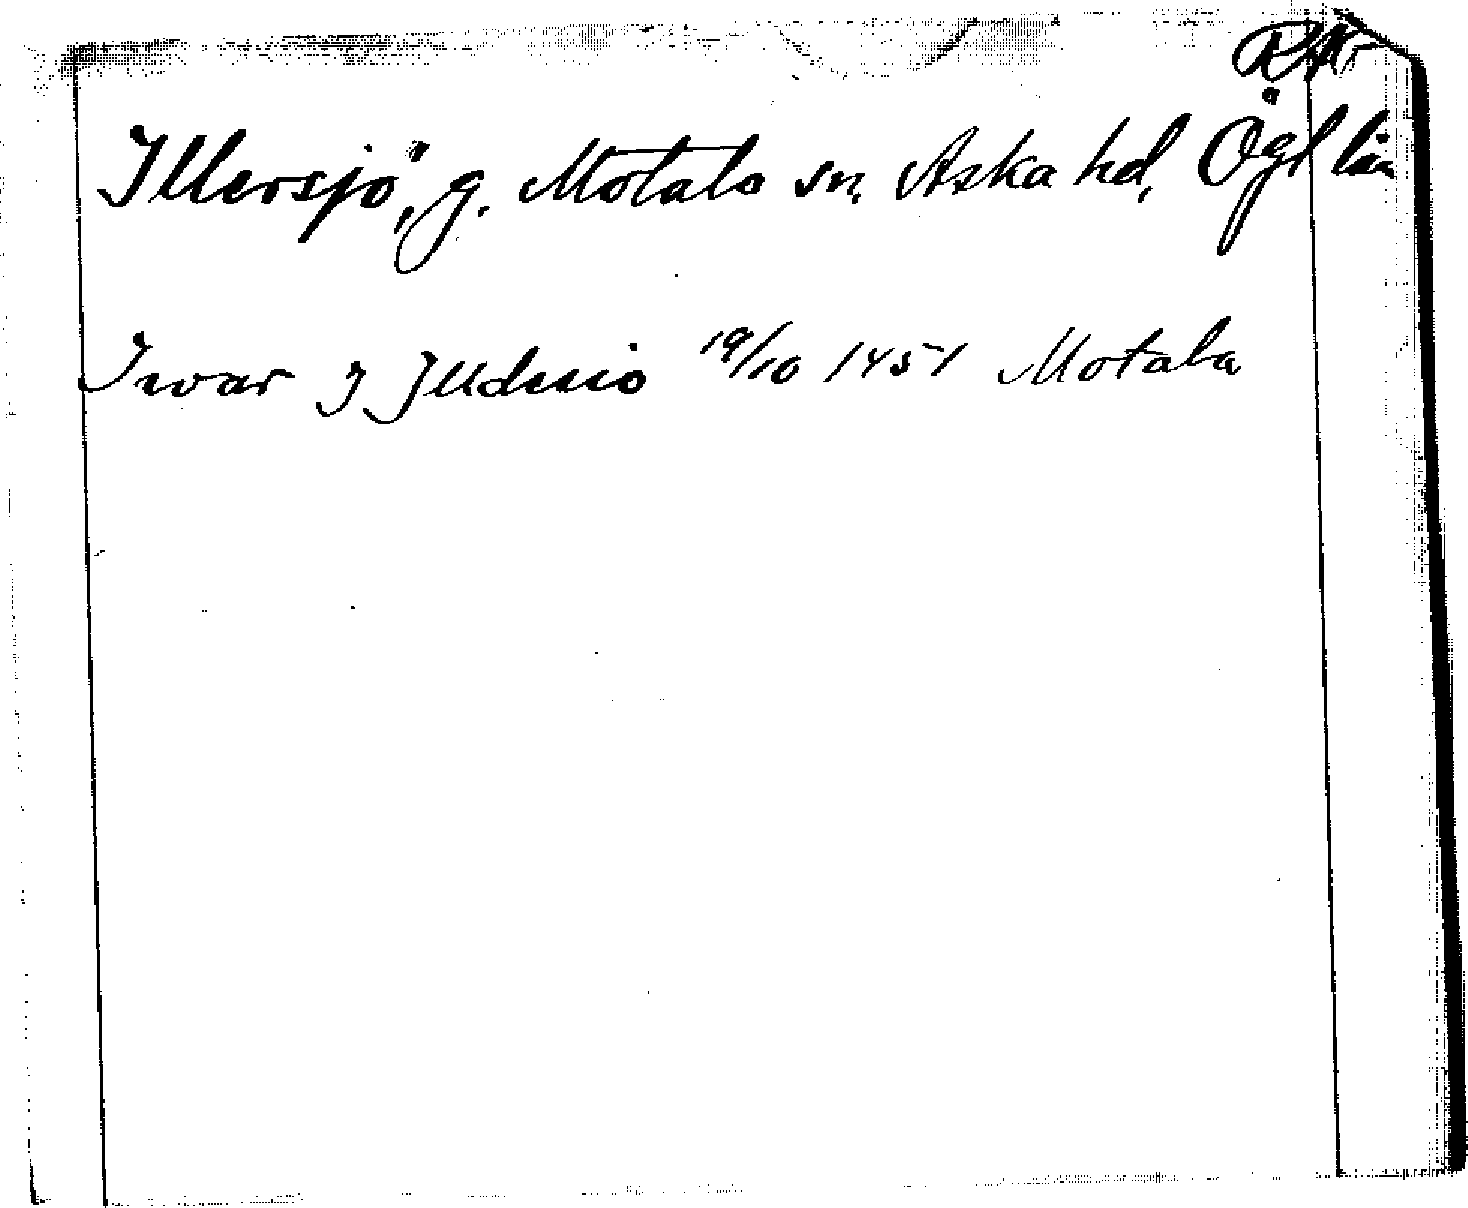 RA
Illersjö, g. Motala sn. Aska hd, Ögl län
Iwar J Jlldesio 19/10 1451 Motala